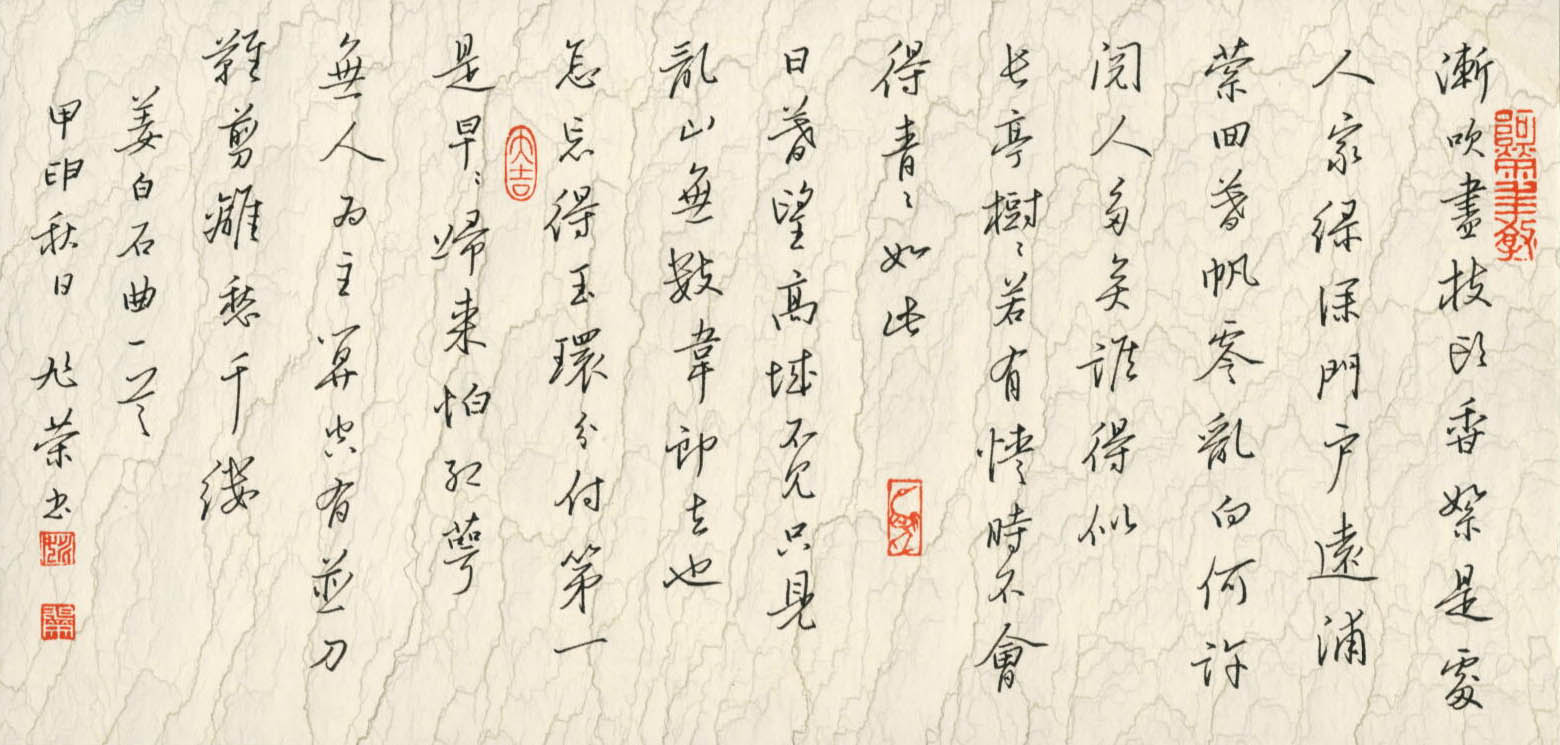 漸吹盡枝頭香絮是處
人家綠深門戶遠浦
縈回暮帆零亂向何許
閱人多矣誰得似
長亭樹〻若有情時不會
得青〻如此
日暮望高城不見只見
亂山無數韋郎去也
怎忘得玉環分付第一
大吉
是早〻歸來怕紅萼
無人為主算空有並刀
難剪離愁千縷
姜白石曲一首
甲申秋日 旭榮書